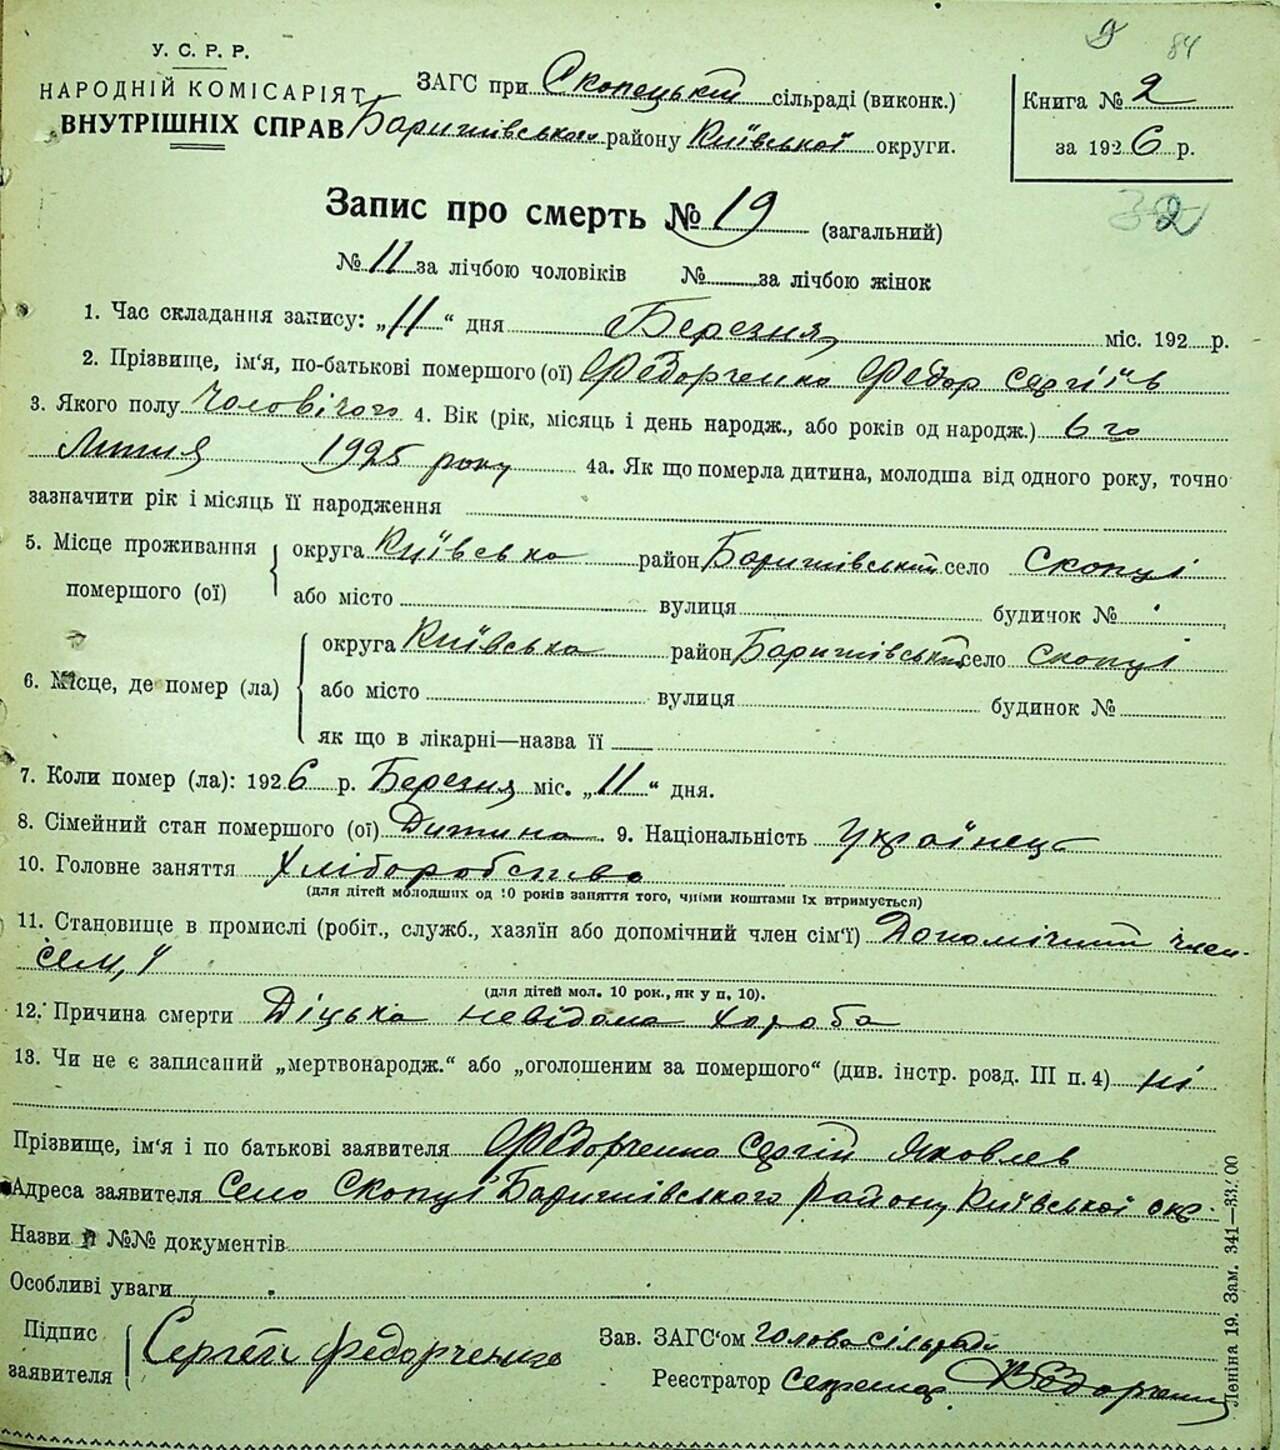 84
У. С. Р. Р.
НАРОДНІЙ КОМІСАРІЯТ
ВНУТРІШНІХ СПРАВ
ЗАГС при Скопецький сільраді (виконк.)
Баришівського району Київської округи.
Книга № 2
за 1926 р.
Запис про смерть № 19 (загальний)
32
№ 11 за лічбою чоловіків № за лічбою жінок
1. Час складання запису: „11“ дня Березня міс. 192 р.
2. Прізвище, ім'я, по-батькові помершого (ої) Федорченко Федор Сергіїв
3. Якого полу Чоловічого 4. Вік (рік, місяць і день народж., або років од народж.) 6го
Липня 1925 року 4а. Як що померла дитина, молодша від одного року, точно
зазначити рік і місяць її народження
5. Місце проживання помершого (ої) { округа Київська район Баришівський село Скопці
або місто вулиця будинок №
6. Місце, де помер (ла) { округа Київська район Баришівський село Скопці
або місто вулиця будинок №
як що в лікарні—назва її
7. Коли помер (ла): 1926 р. Березня міс. „11“ дня.
8. Сімейний стан помершого (ої) Дитина 9. Національність Українець
10. Головне заняття Хліборобство
(для дітей молодших од 10 років заняття того, чиїми коштами їх втримується)
11. Становище в промислі (робіт., служб., хазяїн або допомічний член сім'ї) Допомічний член
сем,ї
(для дітей мол. 10 рок., як у п. 10).
12. Причина смерти Діцька невідома хороба
13. Чи не є записаний „мертвонародж.“ або „оголошеним за помершого“ (див. інстр. розд. III п. 4) ні
Прізвище, ім'я і по батькові заявителя Федорченко Сергій Яковлев
Адреса заявителя Село Скопці Баришівського району Київської окр.
Назви й №№ документів
Особливі уваги
Підпис заявителя { Сергей Федорченко
Зав. ЗАГС'ом голова сільради
Реєстратор Секретар ВФедорченко
Леніна 19. Зам. 341—33.